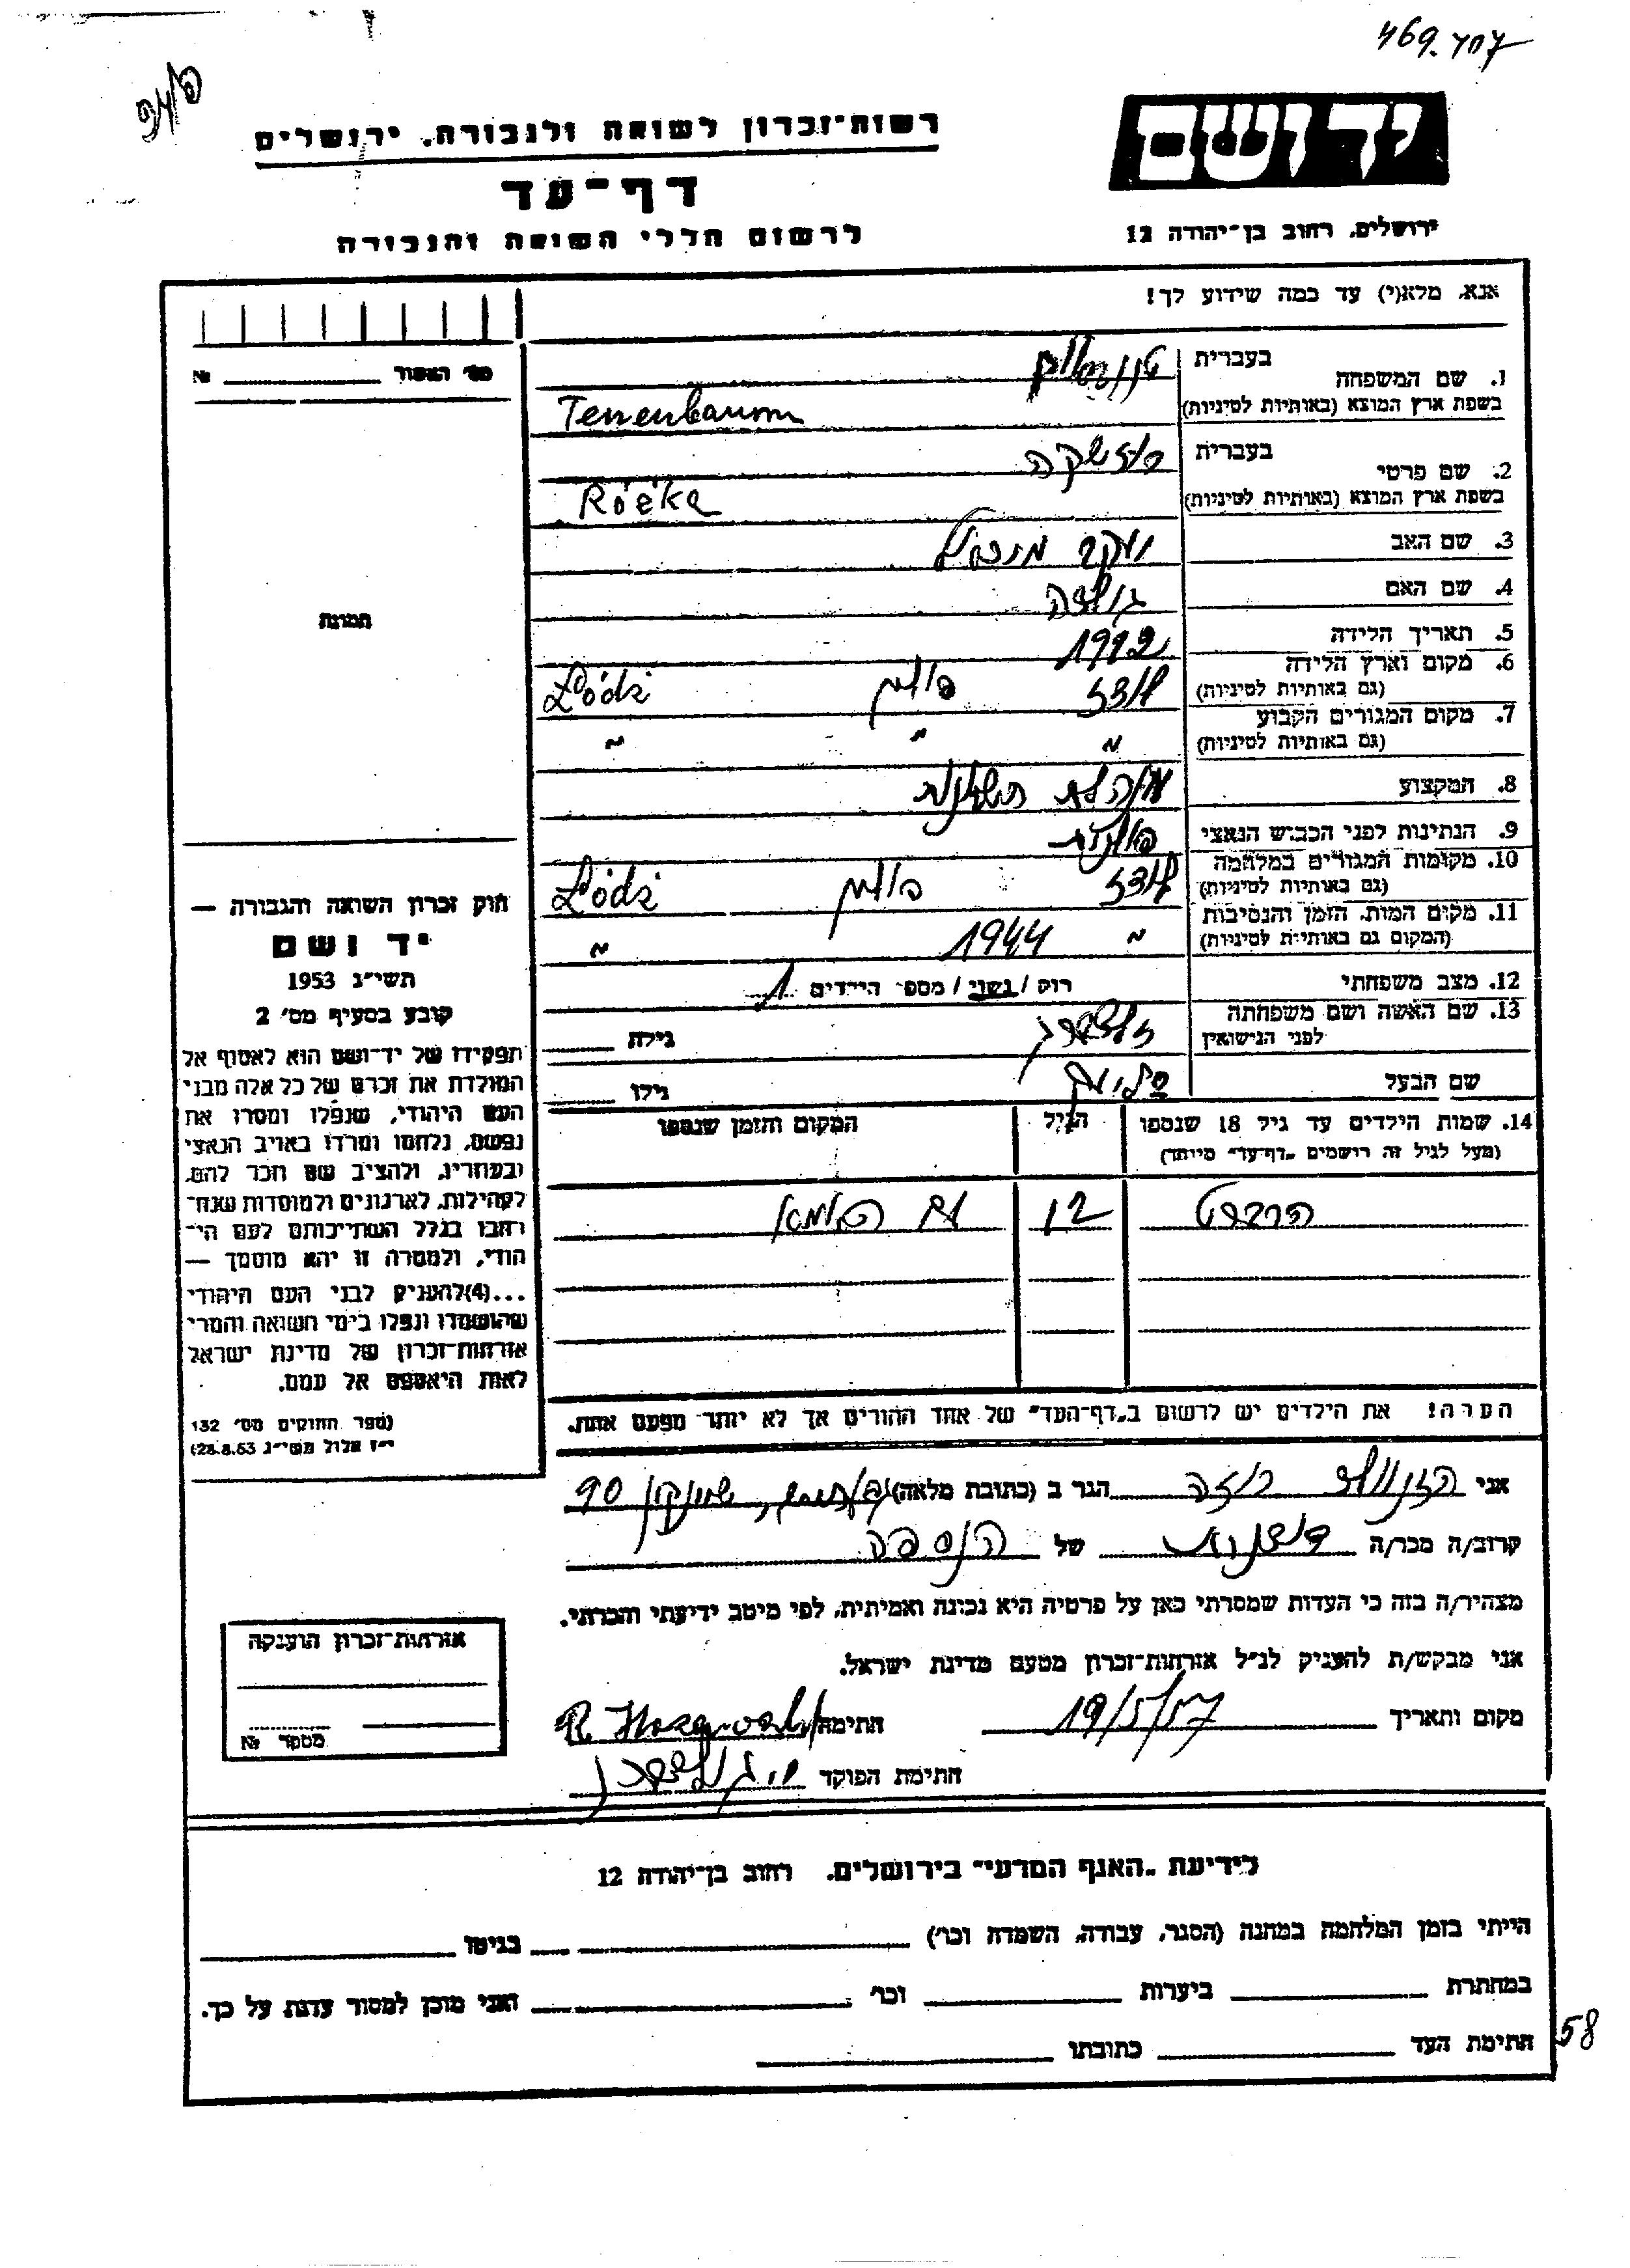 469.707
רשות־זכרון לשואה ולגבורה, ירושלים
דף־עד
לרשום חללי השואה והגבורה
יד ושם
ירושלים, רחוב בן־יהודה 12
אנא, מלא(י) עד כמה שידוע לך!
מס' האשור № 
תמונה
1. שם המשפחה
בעברית טננבוים
בשפת ארץ המוצא (באותיות לטיניות) Tenenbaum
2. שם פרטי
בעברית רוזשקה
בשפת ארץ המוצא (באותיות לטיניות) Róźka
3. שם האב יעקב
4. שם האם
5. תאריך הלידה 1912
6. מקום וארץ הלידה לודז פולין Łódź
(גם באותיות לטיניות)
7. מקום המגורים הקבוע " " "
(גם באותיות לטיניות)
8. המקצוע
9. הנתינות לפני הכבוש הנאצי פולנית
10. מקומות המגורים במלחמה לודז פולין Łódź
(גם באותיות לטיניות)
11. מקום המות, הזמן והנסיבות " 1944 "
(המקום גם באותיות לטיניות)
12. מצב משפחתי רוק / נשוי / מספר הילדים 1
13. שם האשה ושם משפחתה גילה
לפני הנישואין
שם הבעל גילו
14. שמות הילדים עד גיל 18 שנספו הגיל המקום והזמן שנספו
(מעל לגיל זה רושמים "דף־עד" מיוחד)
הרברט 12 עם האמא
הערה! את הילדים יש לרשום ב"דף־העד" של אחד ההורים אך לא יותר מפעם אחת.
חוק זכרון השואה והגבורה —
יד ושם
תשי"ג 1953
קובע בסעיף מס' 2
תפקידו של יד־ושם הוא לאסוף אל
המולדת את זכרם של כל אלה מבני
העם היהודי, שנפלו ומסרו את
נפשם, נלחמו ומרדו באויב הנאצי
ובעוזריו, ולהציב שם וזכר להם,
לקהילות, לארגונים ולמוסדות שנח־
רבו בגלל השתייכותם לעם הי־
הודי, ולמטרה זו יהא מוסמך —
...(4) להעניק לבני העם היהודי
שהושמדו ונפלו בימי השואה והמרי
אזרחות־זכרון של מדינת ישראל
לאות היאספם אל עמם.
(ספר החוקים מס' 132
י"ז אלול תשי"ג 28.8.53)
אני רוזה הגר ב (כתובת מלאה) 90
קרוב/ה מכר/ה של הנספה
מצהיר/ה בזה כי העדות שמסרתי כאן על פרטיה היא נכונה ואמיתית, לפי מיטב ידיעתי והכרתי.
אני מבקש/ת להעניק לנ"ל אזרחות־זכרון מטעם מדינת ישראל.
מקום ותאריך 19/5/57 חתימה
חתימת הפוקד
אזרחות־זכרון הוענקה
מספר №
לידיעת "האגף המדעי" בירושלים, רחוב בן־יהודה 12
הייתי בזמן המלחמה במחנה (הסגר, עבודה, השמדה וכו') בגיטו
במחתרת ביערות וכו' ואני מוכן למסור עדות על כך.
חתימת העד כתובתו
58